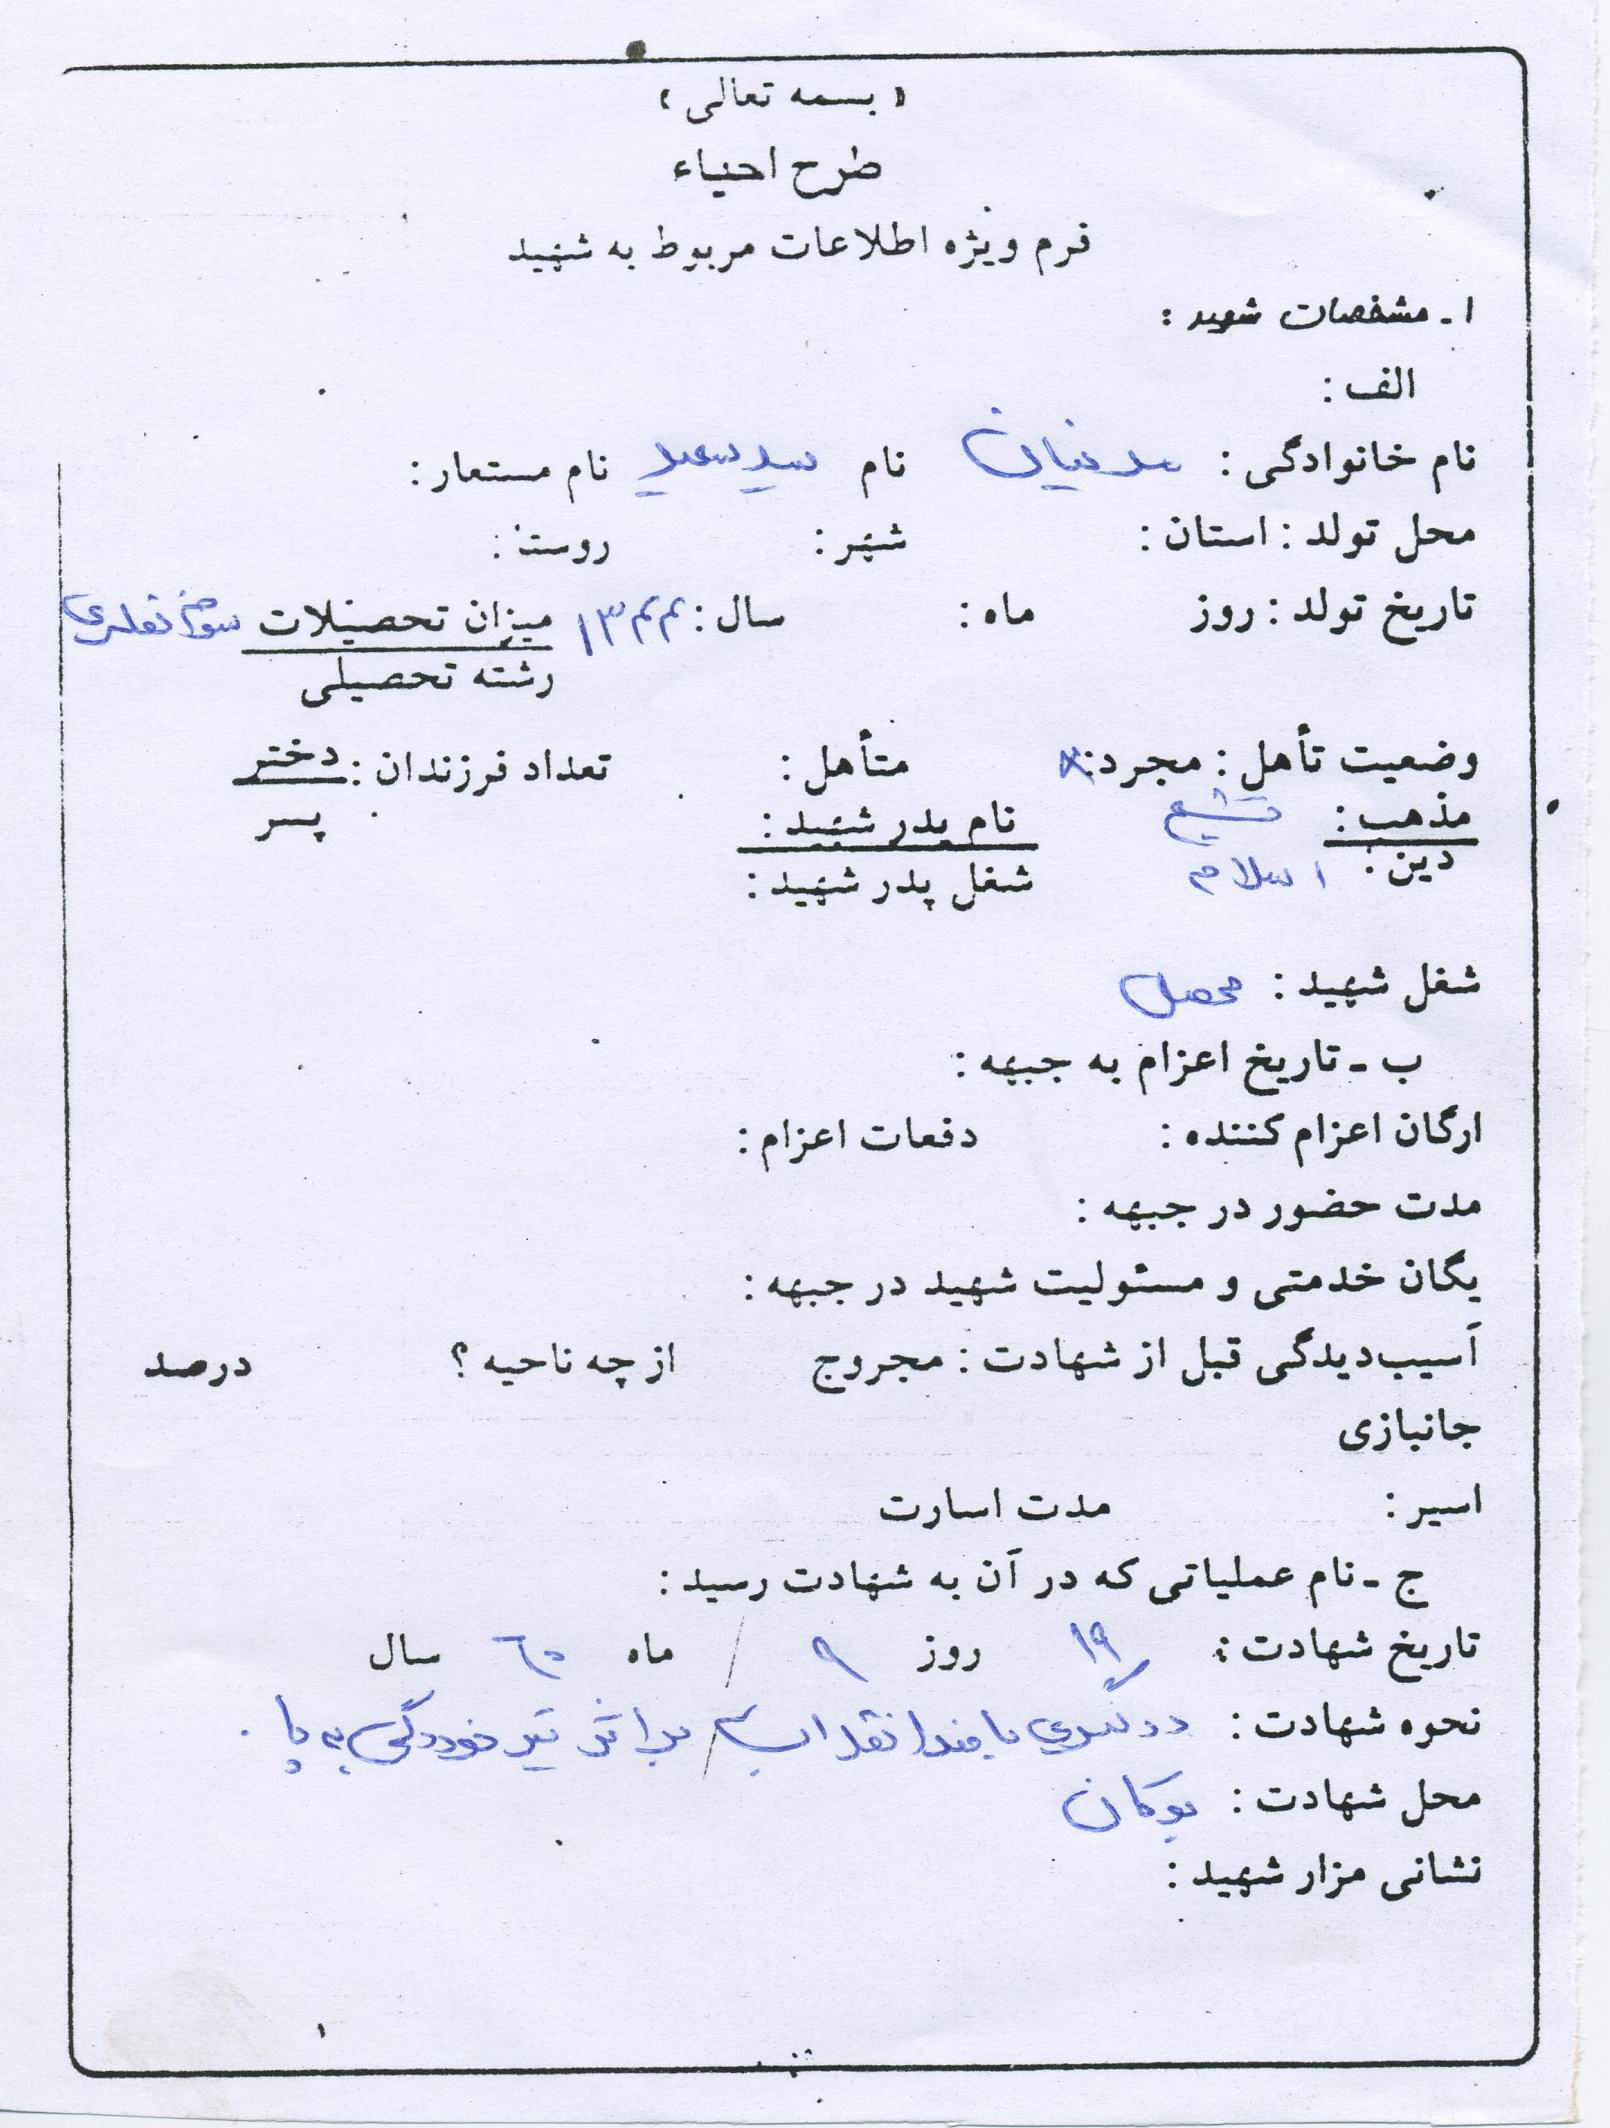 « بسمه تعالی »
طرح احیاء
فرم ویژه اطلاعات مربوط به شهید
۱ ـ مشخصات شهید :
الف :
نام خانوادگی : نام سید سعید نام مستعار :
محل تولد : استان : شهر : روستا :
تاریخ تولد : روز ماه : سال : ۱۳۴۴ میزان تحصیلات
رشته تحصیلی
وضعیت تأهل : مجرد : × متأهل : تعداد فرزندان : دختر
پسر
مذهب : تشیع نام پدر شهید :
دین : اسلام شغل پدر شهید :
شغل شهید : محصل
ب ـ تاریخ اعزام به جبهه :
ارگان اعزام کننده : دفعات اعزام :
مدت حضور در جبهه :
یگان خدمتی و مسئولیت شهید در جبهه :
آسیب‌دیدگی قبل از شهادت : مجروح از چه ناحیه ؟ درصد
جانبازی
اسیر : مدت اسارت
ج ـ نام عملیاتی که در آن به شهادت رسید :
تاریخ شهادت : ۱۹ روز ۹ ماه ۶۰ سال
نحوه شهادت : درگیری با ضد انقلاب بر اثر تیر خوردگی به پا .
محل شهادت : بوکان
نشانی مزار شهید :
۱